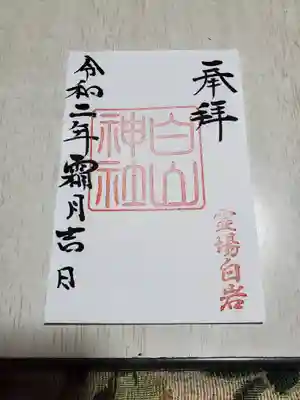 奉拝
白山
神社
霊場白岩
令和二年霜月吉日